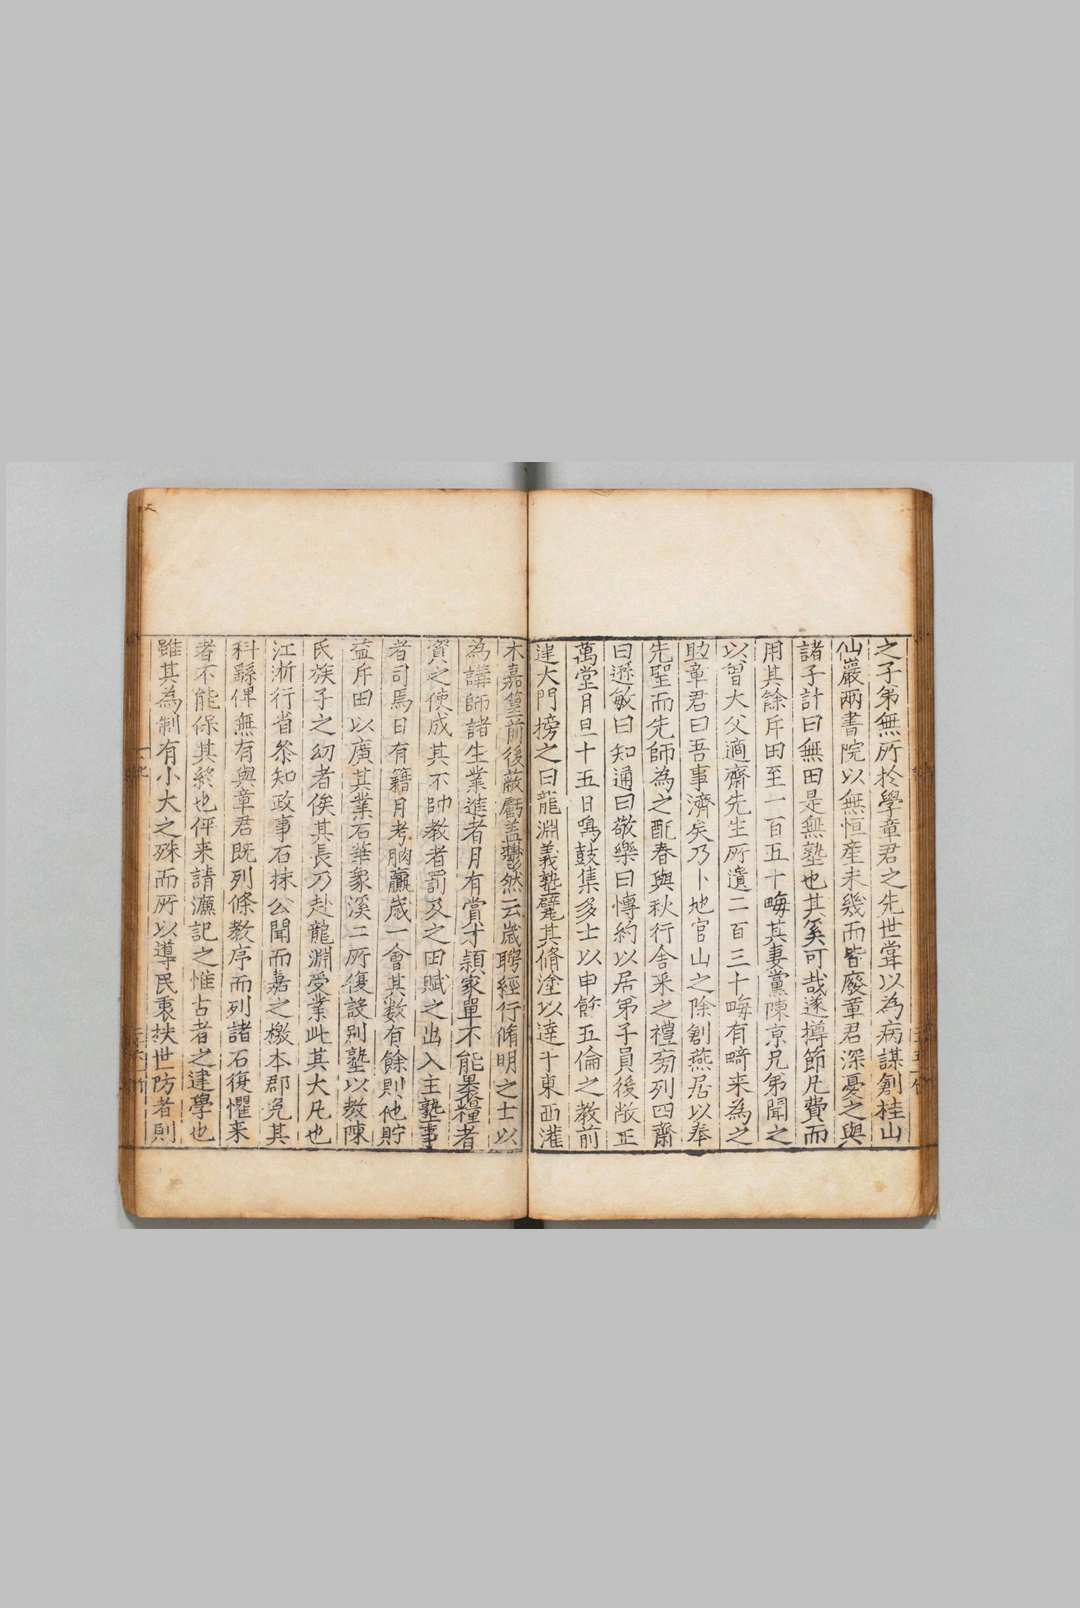 之子弟無所於學章君之先世甞以為病謀創桂山
仙巖兩書院以無恒產未幾而皆廢章君深憂之與
諸子計曰無田是無塾也其奚可哉遂撙節凡費而
用其餘斥田至一百五十畮其妻黨陳京兄弟聞之
以曾大父適齋先生所遺二百三十畮有畸来為之
助章君曰吾事濟矣乃卜地官山之除創燕居以奉
先聖而先師為之配春與秋行舍采之禮旁列四齋
曰遜敏曰知通曰敬樂曰博約以居弟子員後敞正
萬堂月旦十五日鳴鼓集多士以申飭五倫之教前
建大門榜之曰龍淵義塾甓其脩塗以達于東西灌
木嘉篁前後蔽虧盖鬱然云歲聘經行脩明之士以
為講師諸生業進者月有賞才頴家單不能畢糧者
資之使成其不帥教者罰及之田賦之出入主塾事
者司焉日有籍月考朒贏歳一會其數有餘則他貯
益斥田以廣其業石華象溪二所復設别塾以教陳
氏族子之幼者俟其長乃赴龍淵受業此其大凡也
江浙行省叅知政事石抹公聞而嘉之檄本郡免其
科繇俾無有與章君既列條教序而列諸石復懼来
者不能保其終也伻来請濂記之惟古者之建學也
雖其為制有小大之殊而所以導民衷扶世防者則